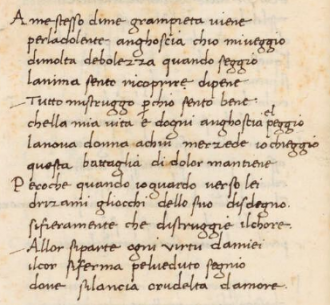 A me stesso dime grampieta viene
perladolente anghoscia chio miveggio
dimolta debolezza quando seggio
lanima sento ricoprire dipene
Tutto mistruggo pchio sento bene
chella mia vita e dogni anghoscia el peggio
lanova donna achui merzede io cheggio
questa battaglia di dolor mantiene
Peroche quando ioguardo verso lei
drizami gliocchi dello suo disdegno
sifieramente che distruggie ilchore
Allor siparte ogni virtu damiei
ilcor siferma pelveduto segnio
dove silancia crudelta damore